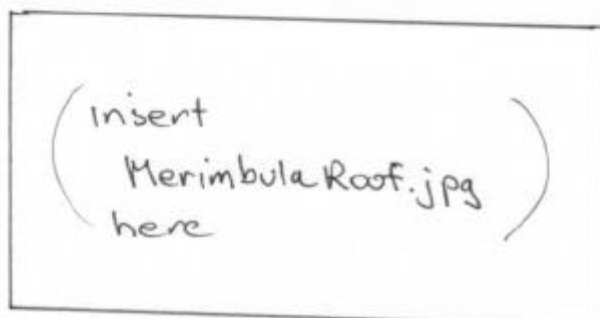 (insert
MerimbulaRoof.jpg
here)